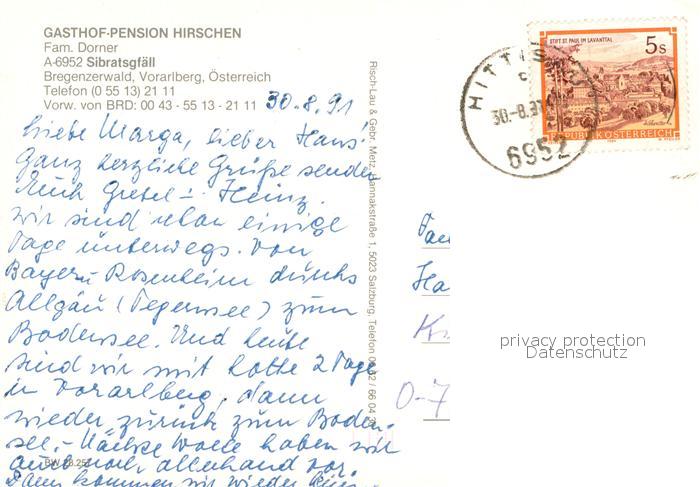 GASTHOF-PENSION HIRSCHEN
Fam. Dorner
A-6952 Sibratsgfäll
Bregenzerwald, Vorarlberg, Österreich
Telefon (0 55 13) 21 11
Vorw. von BRD: 00 43 - 55 13 - 21 11
30.8.91
Liebe Marga, lieber Hans!
Ganz herzliche Grüße senden
Euch Gretel - Heinz.
Wir sind schon einige
Tage unterwegs. Von
Bayern Rosenheim durchs
Allgäu (Tegernsee) zum
Bodensee. Und heute
sind wir mit Lotte 2 Tage
in Vorarlberg, dann
wieder zurück zum Boden-
see. - Nächste Woche haben wir
auch noch allerhand vor.
Dann kommen wir wieder
BW 28.25
Risch-Lau & Gebr. Metz, 5023 Salzburg, Telefon
STIFT ST. PAUL IM LAVANTTAL
5s
REPUBLIK ÖSTERREICH
HITTIS
30.-8.91
6952
Ha
O-7
privacy protection
Datenschutz